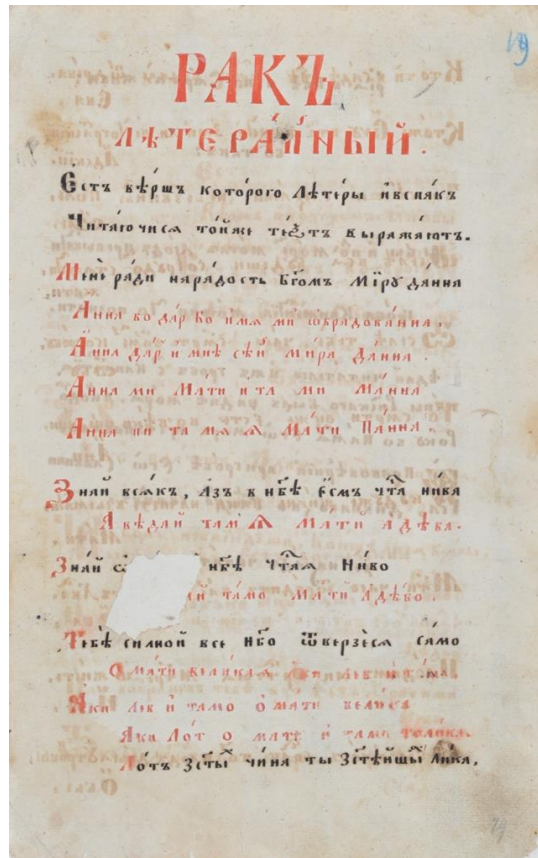 РАКЪ
ЛѢТЕРА́ЛНЫЙ.
Є҆стъ вѣршъ которого лѣтеры и҆вспакъ
Читаючися тойже теѯтъ выражаютъ.
Мене ра́ди на ра́дость Бг҃омъ мі́ру да́нна
Анна во да́р бо и҆мя ми ѿбрадова́нна.
Анна да́р и мнѣ се́й ми́ра да́нна.
Анна ми Ма́ти и҆ та ми ма́нна
Анна пи та мя я Ма́ти Па́нна.
Знай всякъ, А́зъ в нб҃ѣ Є҆смъ чт҃а ни́ва
А вѣдай там я Ма́ти а дѣва.
Знай нб҃ѣ чт҃ая Ниво
тамо Мати а дѣво.
Тебѣ силной все нб҃о ѿверзе́ся са́мо
О ма́ти вели́кая
Яки лев и тамо о ма́ти
Яки Лот о мати и тамо
Лотъ чи́ня ты лика.
19